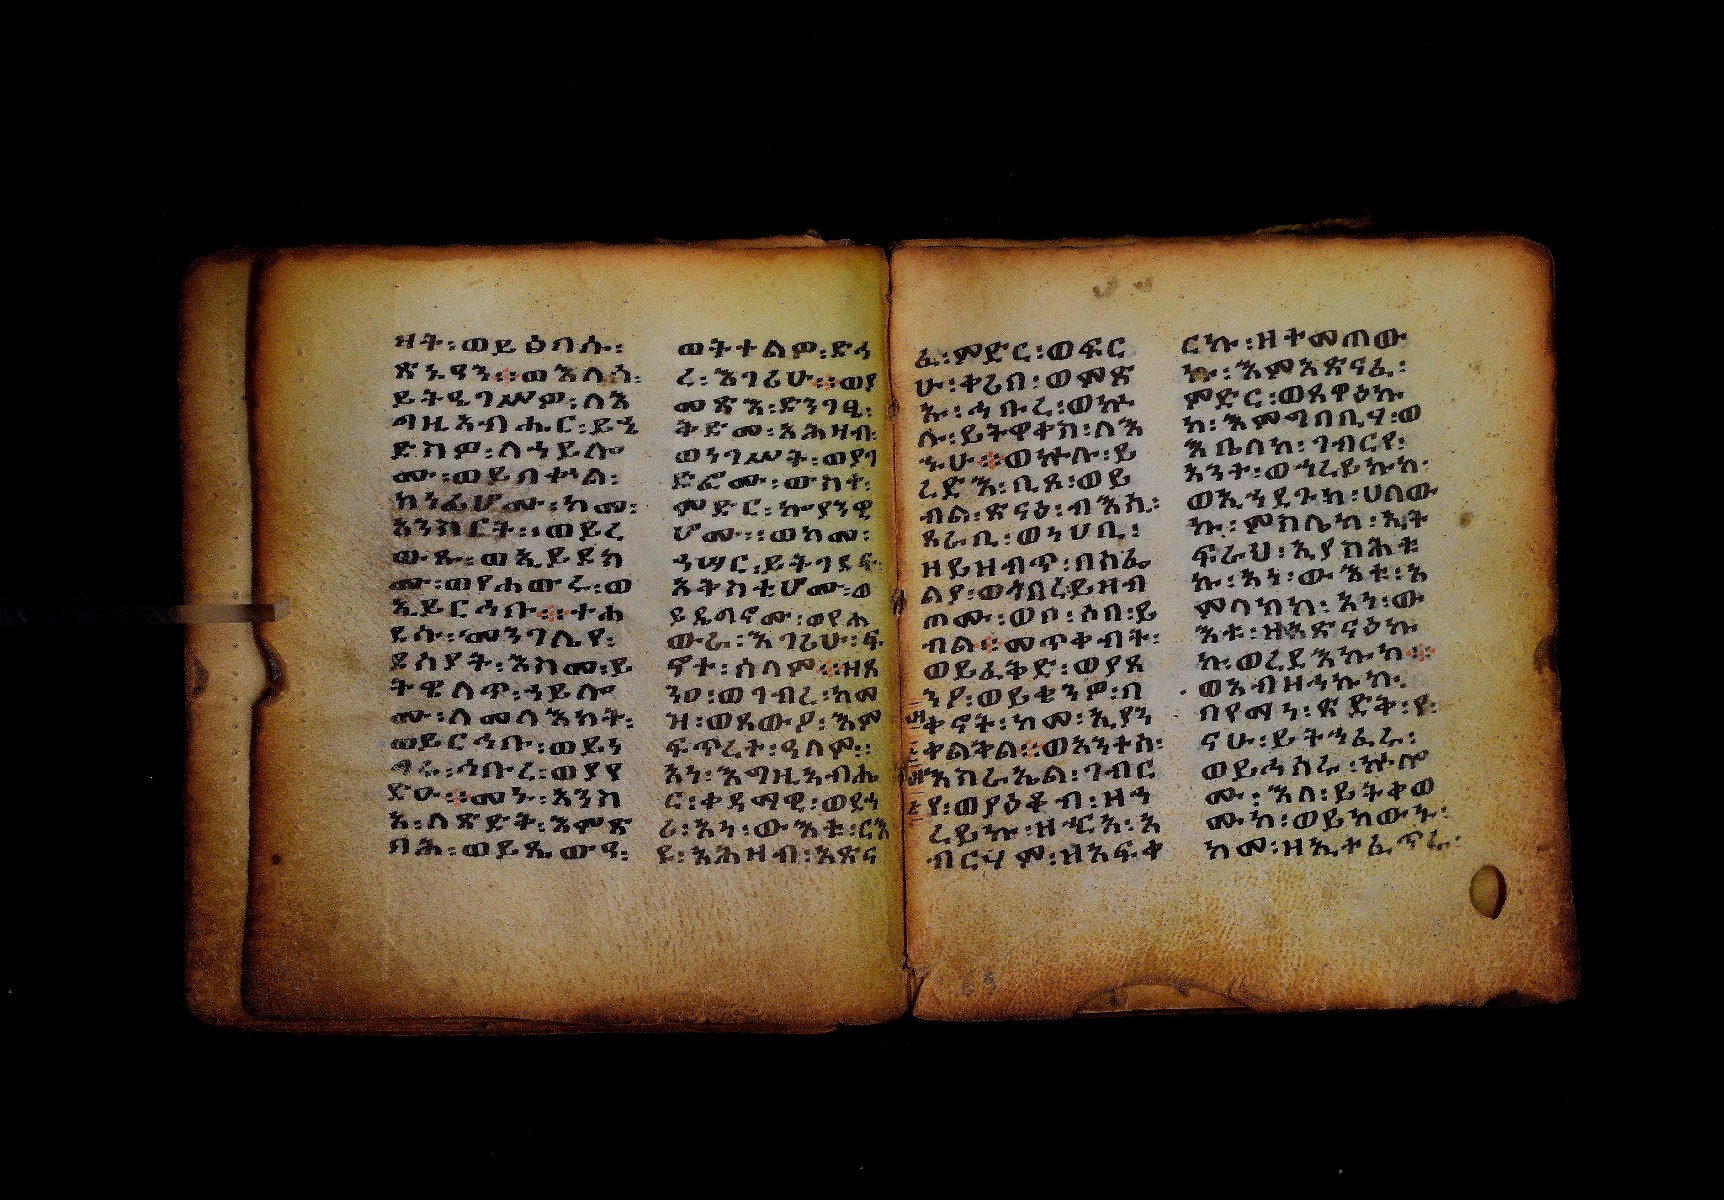 ዛት፡ወይዕበሱ፡
ጽኑዓን፡፡ወእለሰ፡
ይትዔገሥዎ፡ለእ
ግዚአብሔር፡ይኄ
ድስዎ፡ለኀይሎ
ሙ፡ወይበቍል፡
ክንፊሆሙ፡ከመ፡
አንስርት፡፡ወይረ
ውጹ፡ወኢይደክ
ሙ፡ወየሐውሩ፡ወ
ኢይርኅቡ፡፡ተሐ
ደሱ፡መንገሌየ፡
ደሰያት፡እስመ፡ይ
ትዌለጥ፡ኀይሎ
ሙ፡ለመላእክት፡
ወይርኅቡ፡ወይነ
ግሩ፡ኅቡረ፡ወያየ
ድዑ፡፡መኑ፡አንሥ
አ፡ለጽድቅ፡እምጽ
ባሕ፡ወይጼውዓ፡
ወትተልዎ፡ድኅ
ረ፡እገሪሁ፡፡ወያ
መጽእ፡ድንጋፄ፡
ቅድመ፡አሕዛብ፡
ወነገሥት፡ወያገ
ድፎሙ፡ውስተ፡
ምድር፡ኲያንዊ
ሆሙ፡፡ወከመ፡
ኀሣር፡ይትገደፍ፡
አቅስቲሆሙ፡ወ
ይዴግኖሙ፡ወየሐ
ውራ፡እገሪሁ፡ፍ
ኖተ፡ሰላም፡፡ዘጸ
ንዐ፡ወገብረ፡ከመ
ዝ፡ወጸውዖ፡እም
ፍጥረት፡ዓለም፡፡
አነ፡እግዚአብሔ
ር፡ቀዳማዊ፡ወደኃ
ሪ፡አነ፡ውእቱ፡ርእ
ዩ፡አሕዛብ፡አጽና
ፈ፡ምድር፡ወፍር
ሁ፡ቀሪበ፡ወምጽ
ኡ፡ኅቡረ፡ወኵ
ሉ፡ይትዋቀስ፡ለእ
ኁሁ፡፡ወኵሉ፡ይ
ረድእ፡ቢጾ፡ወይ
ብል፡ጽናዕ፡ብእሲ፡
ጸራቢ፡ወነሀቢ፡
ዘይዝብጥ፡በከፌ
ልያ፡ወኅበረይዘብ
ጠሙ፡ወቦ፡ሶበ፡ይ
ብል፡፡መጥቀብት፡
ወይፈቅድ፡ወያጸ
ንዖ፡ወይቄንዎ፡በ
ቅኖት፡ከመ፡ኢያን
ቀልቅል፡፡ወአንተሰ፡
እስራኤል፡ገብር
የ፡ወያዕቆብ፡ዘኀ
ረይኩ፡ዘርአ፡አ
ብርሃም፡ዘአፍቀ
ርኩ፡ዘተመጠው
ኩ፡እምአጽናፈ፡
ምድር፡ወጸዋዕኩ
ከ፡እምግበቢሃ፡ወ
እቤለከ፡ገብርየ፡
አንተ፡ወኀረይኩከ፡
ወኢኀደጉከ፡ሀለው
ኩ፡ምስሌከ፡ኢት
ፍራህ፡ኢያስሕቱ
ከ፡አነ፡ውእቱ፡አ
ምላክከ፡አነ፡ው
እቱ፡ዘአጽናዕኩ
ከ፡ወረዳእኩከ፡፡
ወአብዛኅኩከ፡
በየማነ፡ጽድቅ፡የ፡
ናሁ፡ይትኀፈሩ፡
ወይኀስሩ፡ኵሎ
ሙ፡እለ፡ይትቃወ
ሙከ፡ወይከውኑ፡
ከመ፡ዘኢተፈጥሩ፡